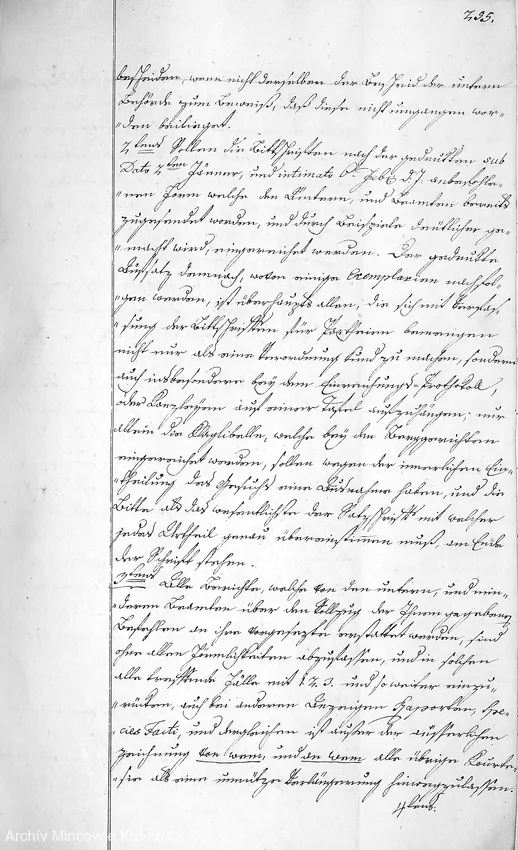 295.
bescheiden, wenn nicht derselben der Bescheid der untern
Behörde zum Beweiß, daß diese nicht umgangen wor-
„den beilieget.
2tens Sollen die Bittschriften nach der gedrukten sub
Dato 2ten Jänner, und intimato 6t Febr. d. J. anbefohle-
„nen Form welche den Ämtern, und Beamten bereits
zugesendet worden, und durch Beispiele deutlicher ge-
„macht wird, eingereichet werden. Der gedrukte
Aufsatz demnach, wovon einige Exemplarien nachfol-
„gen werden, ist überhaupt allen, die sich mit Verfas-
„sung der Bittschriften für Partheien bemengen
nicht nur als eine Verordnung kund zu machen, sondern
auch insbesondere bey dem Einreichungs-Prothokoll,
oder Kanzleyen auf einer Tafel aufzuhängen: nur
allein die Klaglibelle, welche bey den Berggerichten
eingereichet werden, sollen wegen der innerlichen Ein-
„theilung des Gesuchs eine Ausnahme haben, und die
Bitte als das wesentlichste der Satzschrift mit welcher
jedes Urtheil genau übereinstimmen muß, am Ende
der Schrift stehen.
3tens Alle Berichte, welche von den untern, und min-
„deren Beamten über den Vollzug der Ihnen gegebenen
Befehlen an ihre Vorgesezte erstattet werden, sind
ohne allen Förmlichkeiten abzufassen, und in solchen
alle treffende Fälle mit 1. 2. 3. und so weiter einzu-
„rüken, auch bei anderen Anzeigen Rapporten, Spe-
„cies Facti, und dergleichen ist ausser der äusserlichen
Zeichnung von wem, und an wem alle übrige Kourtoi-
„sie als eine unnütze Verlängerung hinwegzulassen.
4tens:
Archiv Mincovne Kremnica